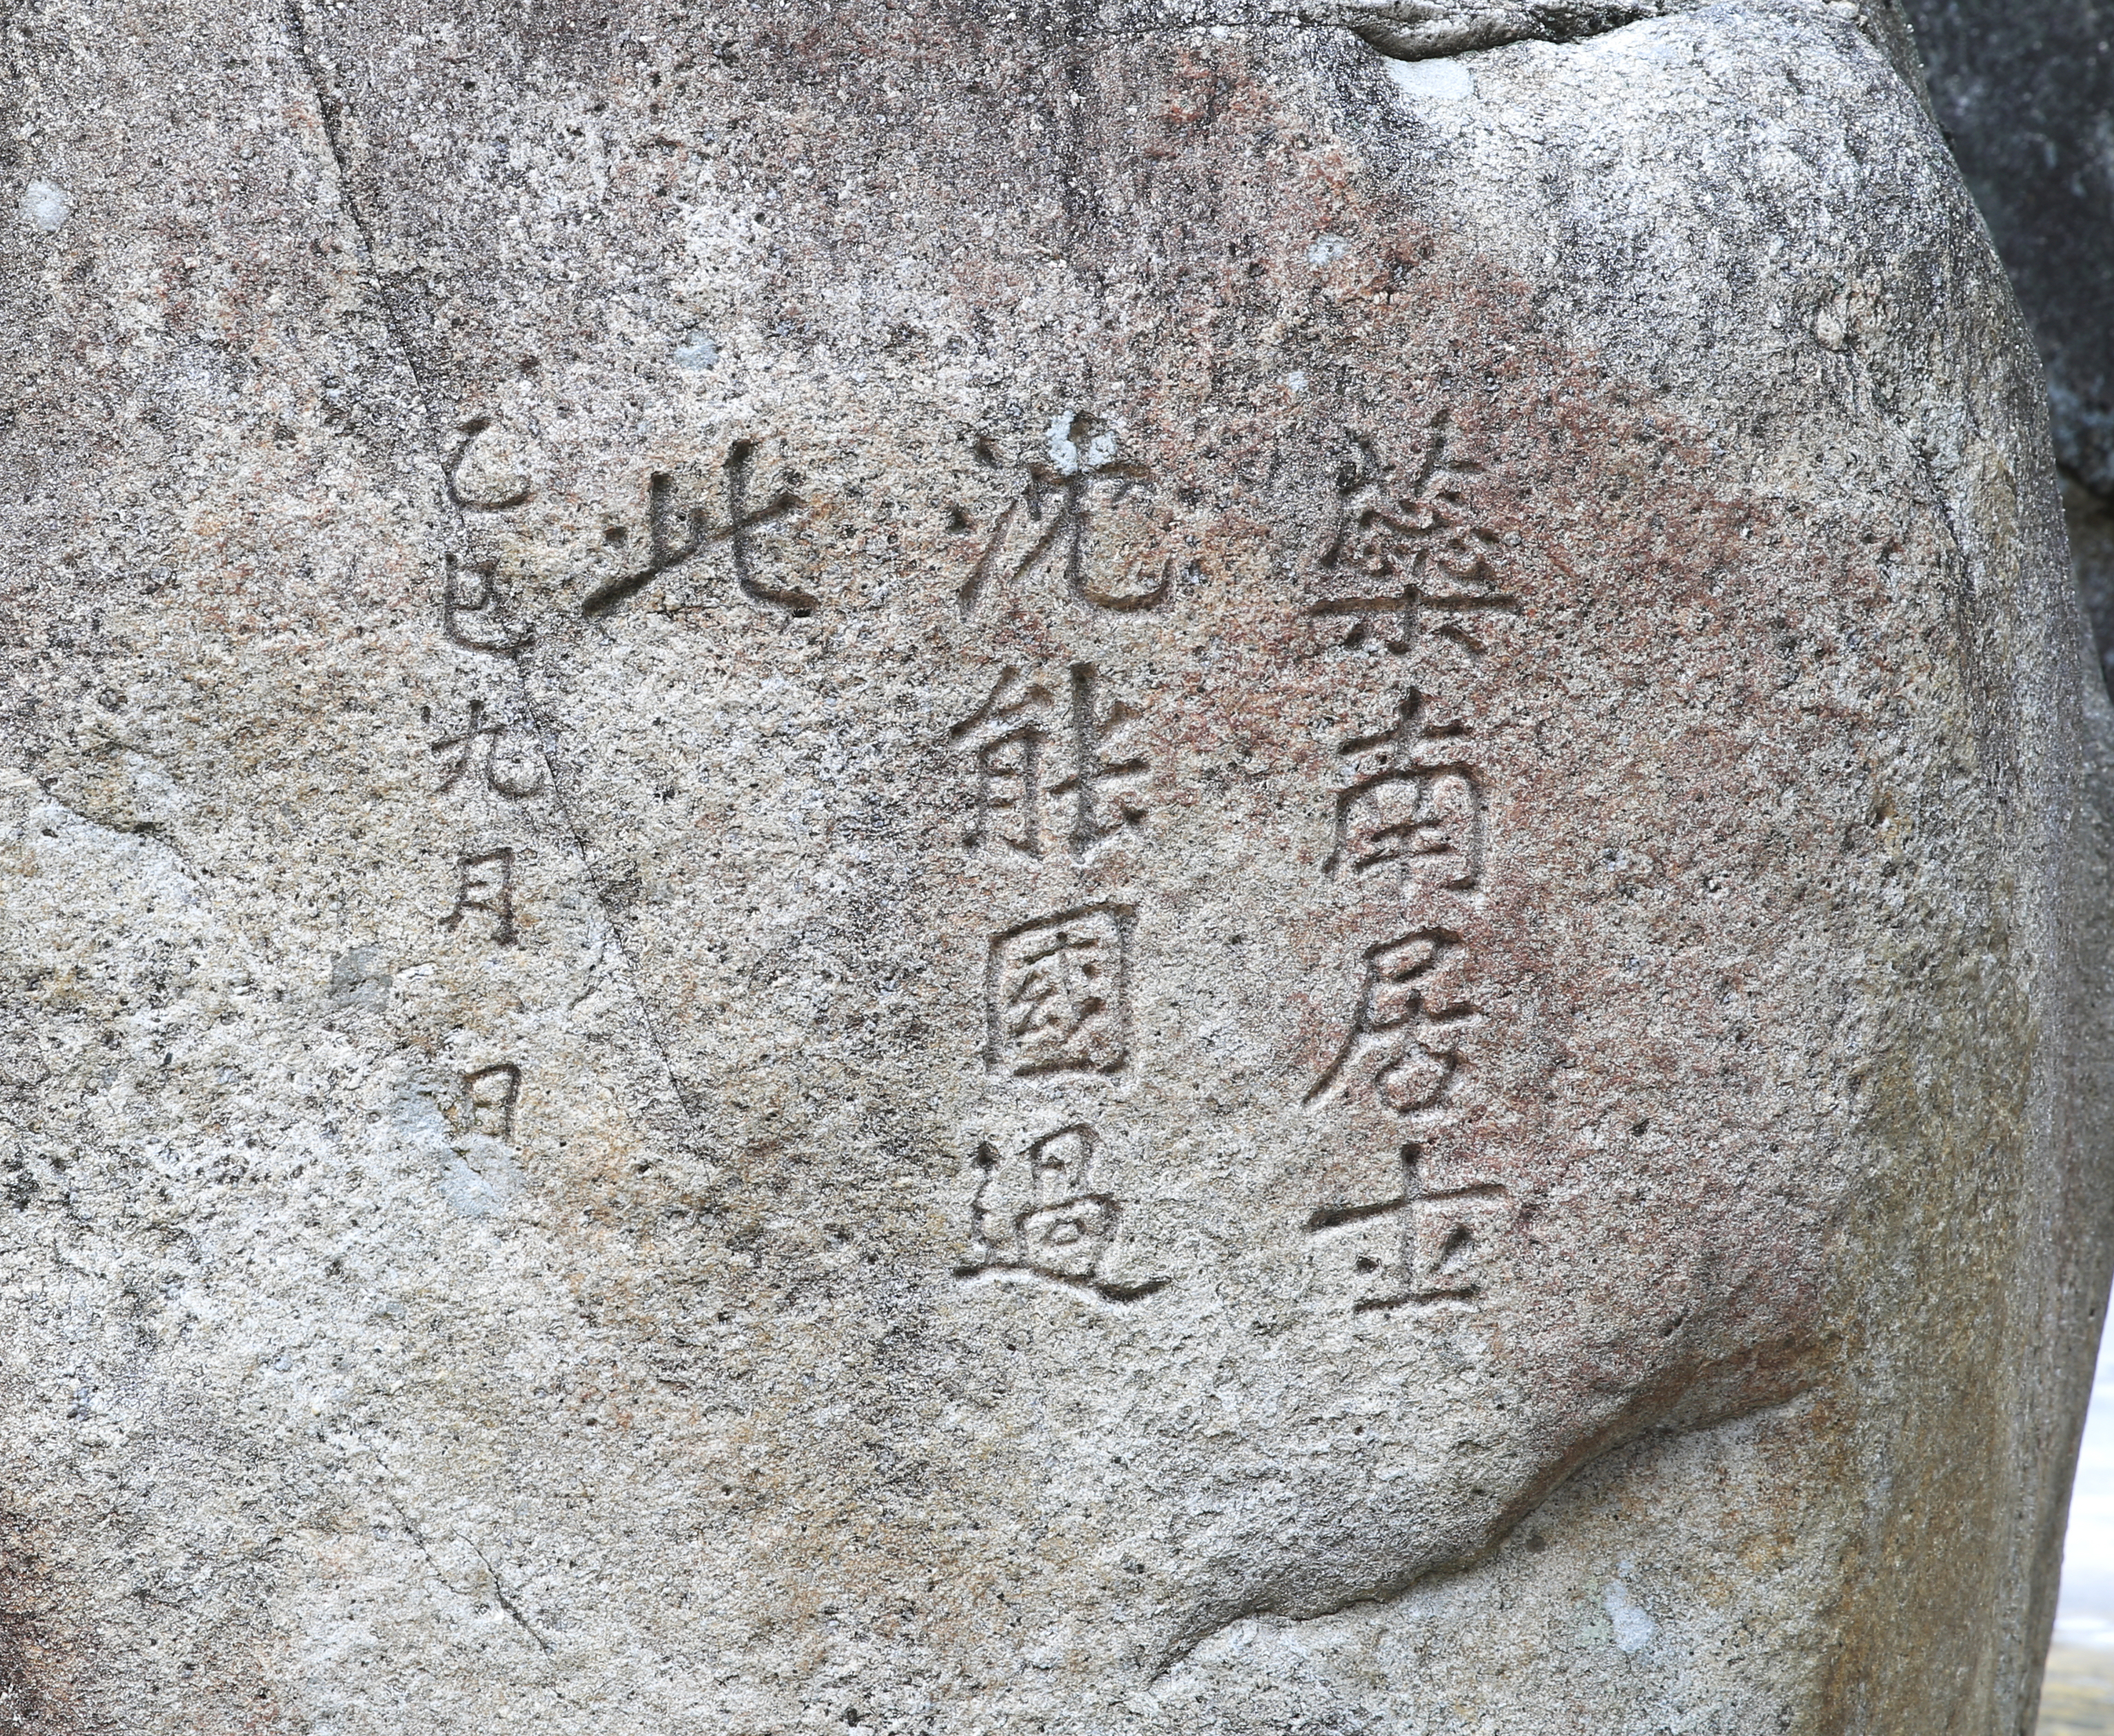 蘂南居士
沈能國過
此
己巳九月日